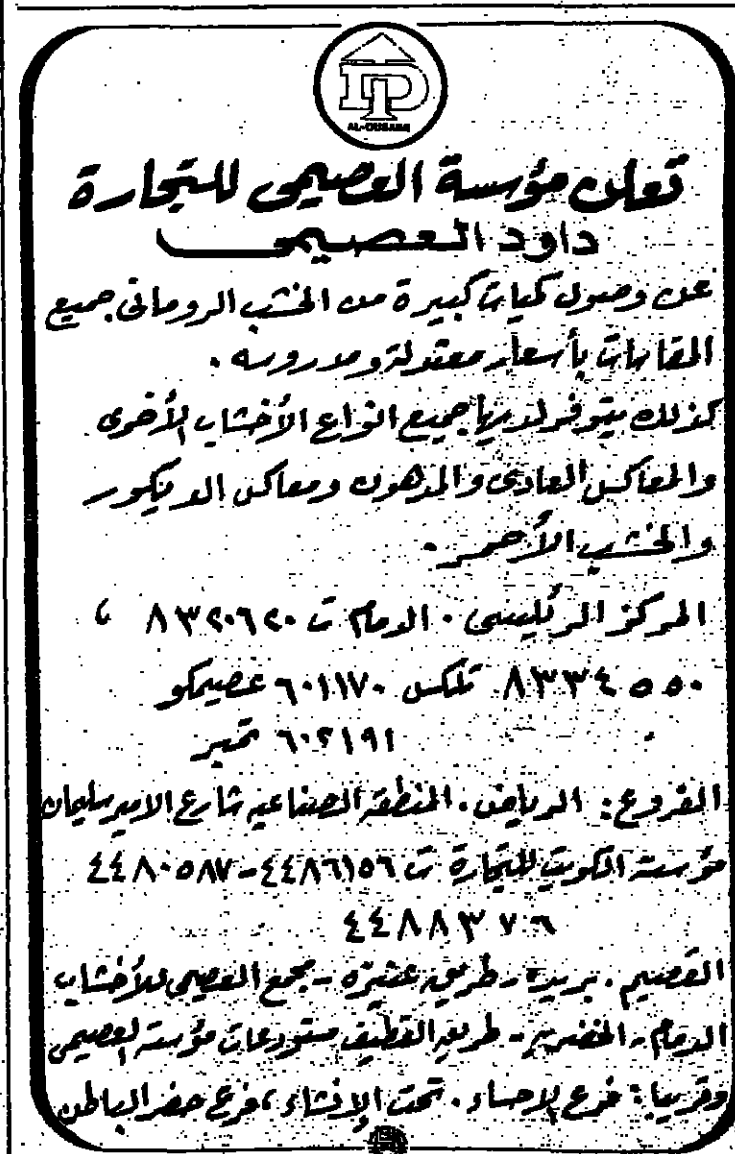 AL-OUSAIMI
تعلن مؤسسة العصيمى للتجارة
داود العصيمى
عن وصول كميات كبيرة من الخشب الرومانى جميع
المقاسات بأسعار معتدلة ومدروسه .
كذلك يتوفر لديها جميع انواع الأخشاب الأخرى
والمعاكس العادى والمدهون ومعاكس الديكور
والخشب الأحمر .
المركز الرئيسى . الدمام ت ٨٣٢٠٦٢٠ ،
٨٣٣٤٥٥٠ تلكس ٦٠١١٧٠ عصيمكو
٦٠٢١٩١ تمبر
الفروع : الرياض . المنطقة الصناعيه شارع الامير سليمان
مؤسسة الكويت للتجارة ت ٤٤٨٦١٥٦ - ٤٤٨٠٥٨٧
٤٤٨٨٣٧٦
القصيم . بريدة - طريق عنيزه - مجمع العصيمى للأخشاب
الدمام - الخضريه - طريق القطيف مستودعات مؤسسة العصيمى
وقريبا : فرع الاحساء . تحت الإنشاء ، فرع حفر الباطن